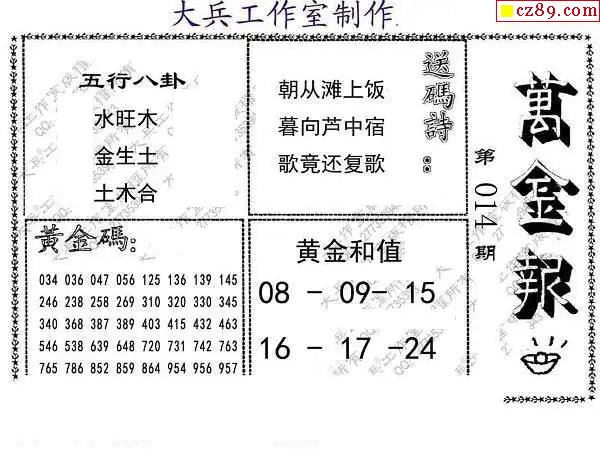 大兵工作室制作
cz89.com
五行八卦
水旺木
金生土
土木合
送碼詩：
朝从滩上饭
暮向芦中宿
歌竟还复歌
萬金報
第014期
黃金碼:
034 036 047 056 125 136 139 145
246 238 258 269 310 320 330 345
340 368 387 389 403 415 432 463
546 538 639 648 720 731 742 763
765 786 852 859 864 954 956 957
黄金和值
08 - 09- 15
16 - 17 -24